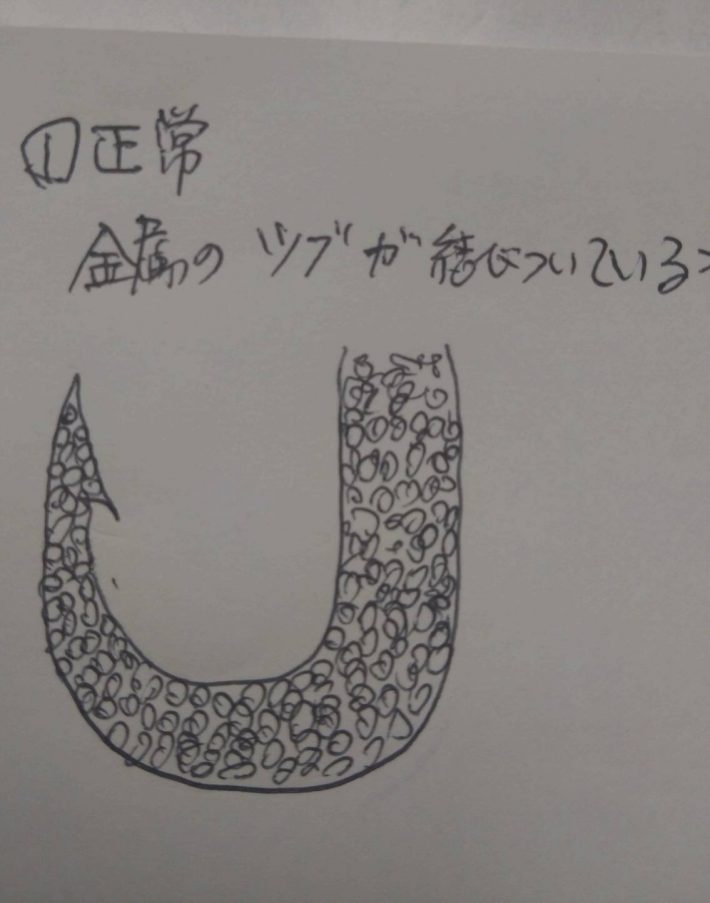 ①正常
金属のツブが結びついている